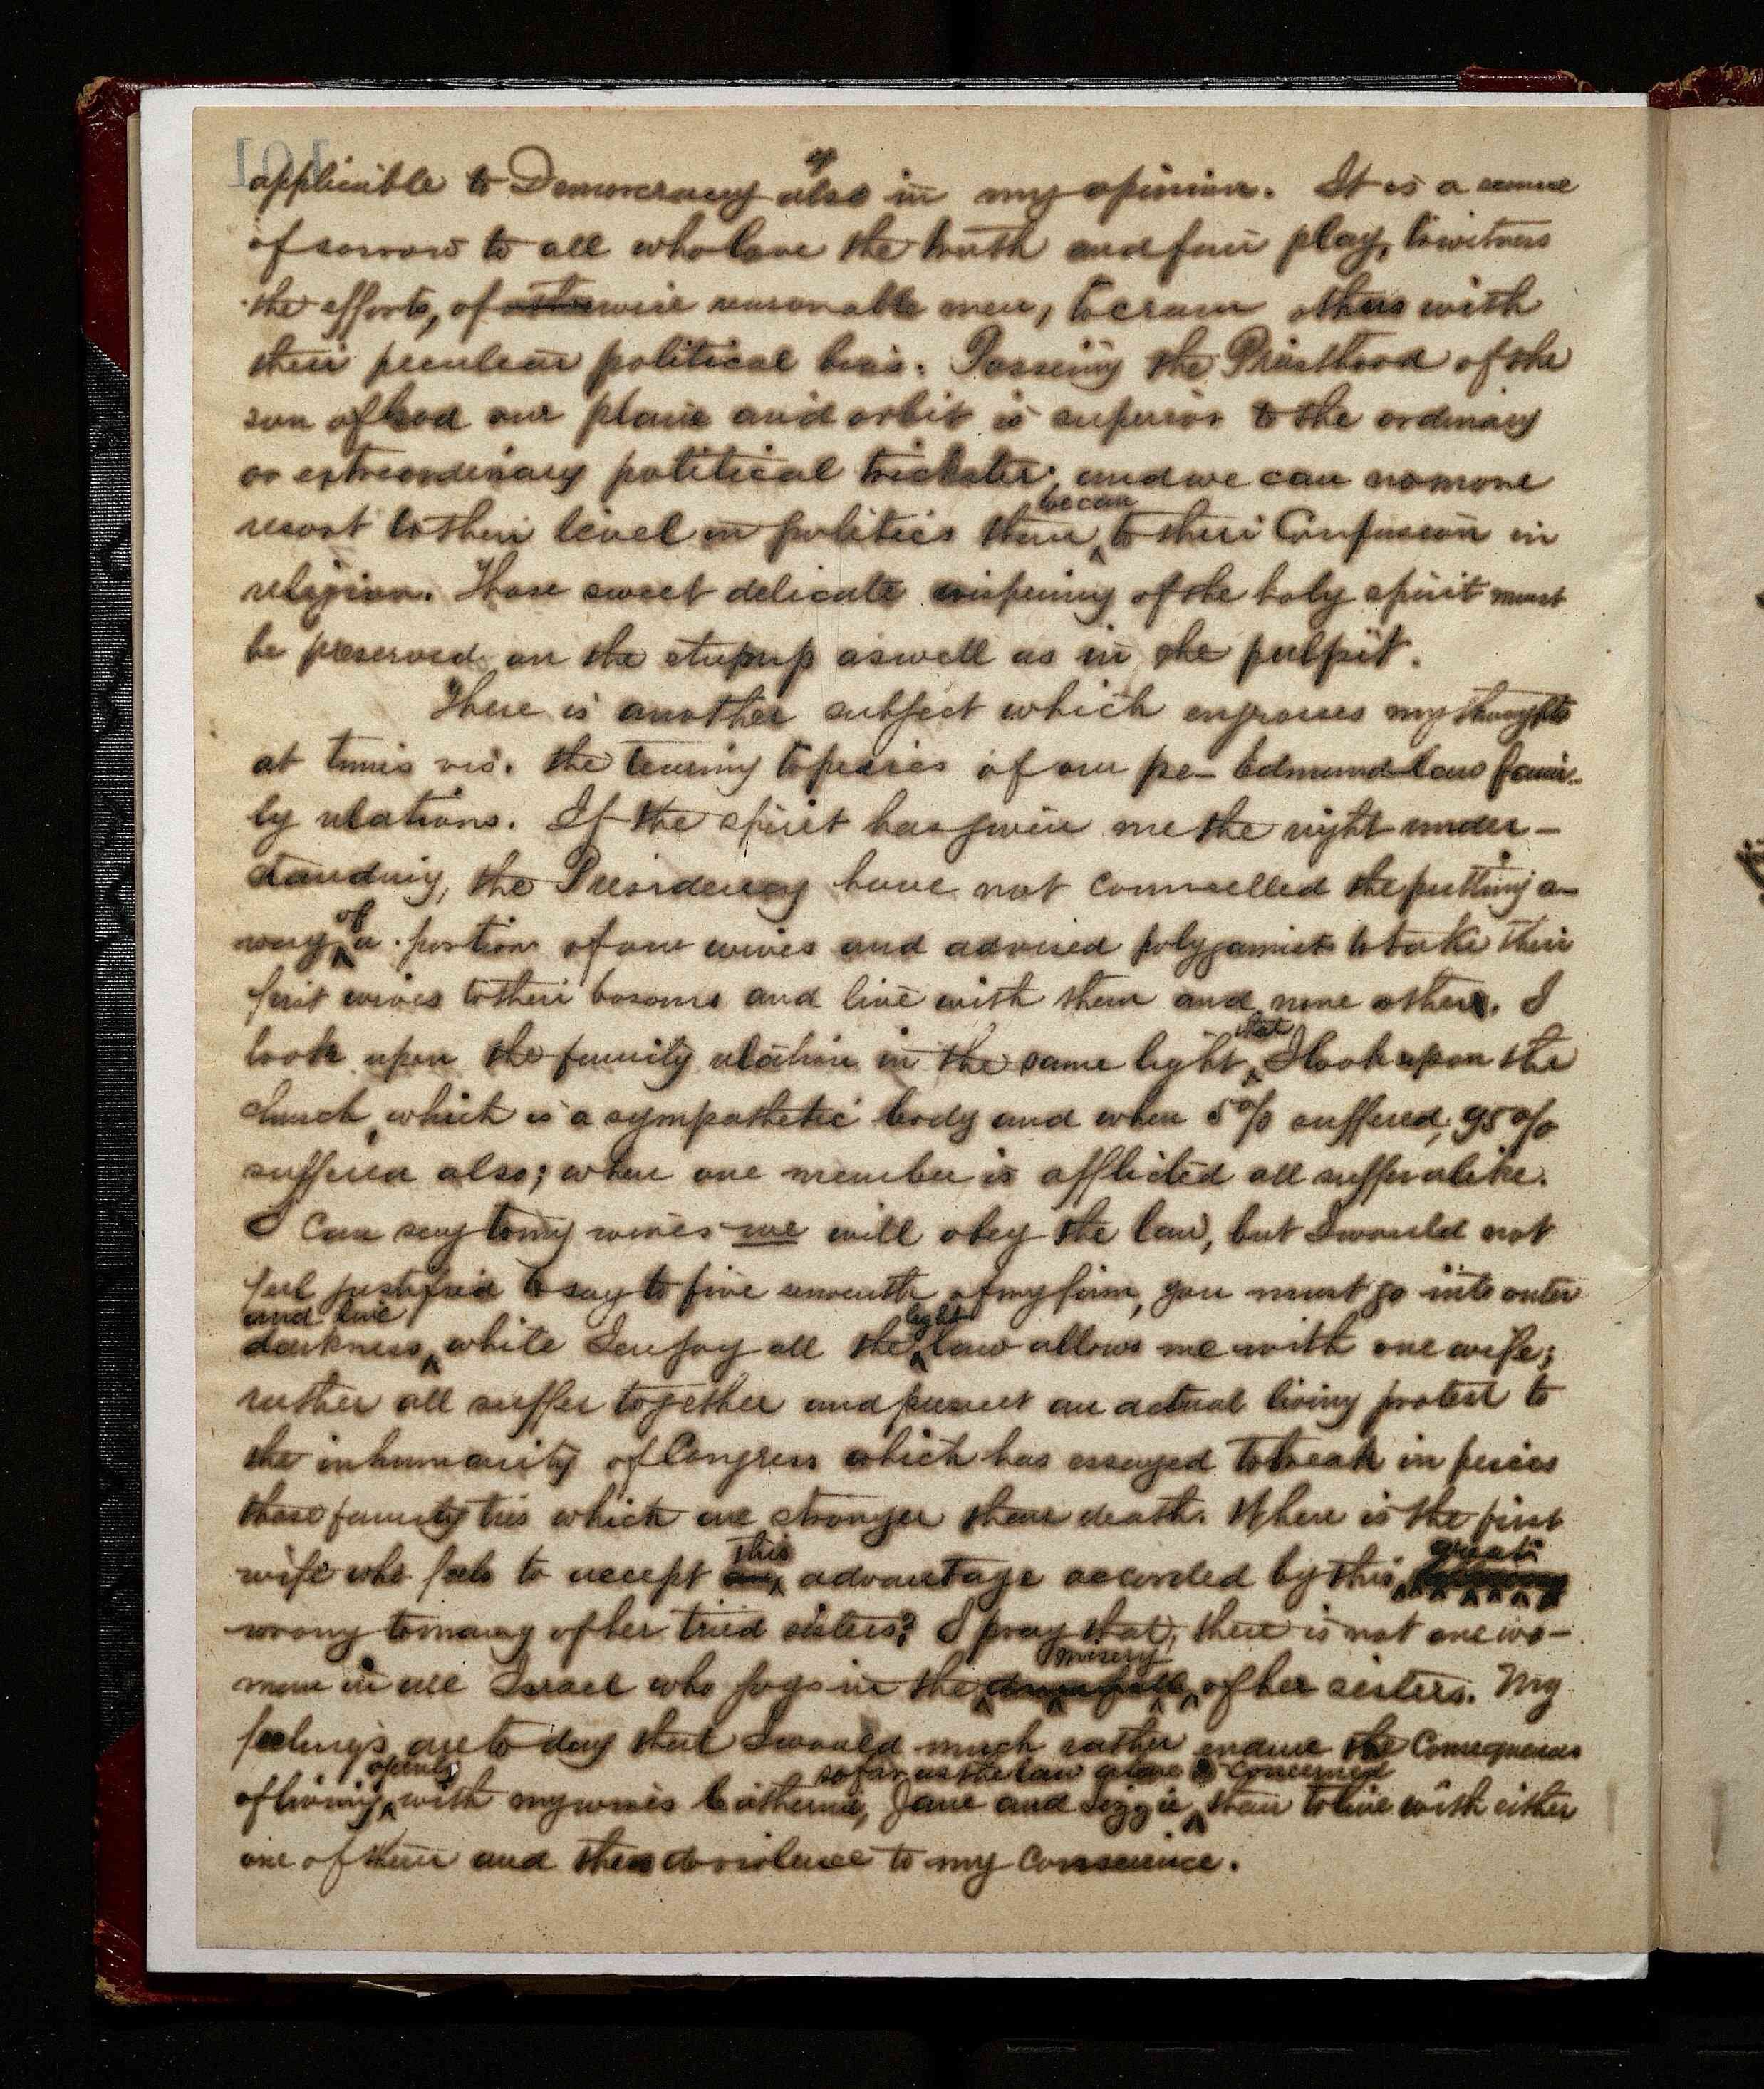 applicable to Democracy also in my opinion. It is a
of sorrow to all who love the truth and fair play, to witness
the efforts, of otherwise reasonable men, to cram others with
their peculear political bias. Possesing the Priesthood of the
son of God our plane and orbit is superior to the ordinary
or extraordinary political trickster, and we can no more
we can
resort to their level in politics than to their Confusion in
religion. Those sweet delicate wispering of the holy spirit must
be preserved on the stump as well as in the pulpit.
There is another subject which engrosses my thoughts
at times vis. the tearing to peices of our pe- Edmund law fami-
ly relations. If the spirit has given me the right under-
standing, the Presidency have not counselled the putting a-
of
way a portion of our wives and advised polygamists to take their
first wives to their bosoms and live with them and none others. I
that
look upon the family relation in the same light I look upon the
church, which is a sympathetic body and when 5% suffered, 95%
suffered also; when one member is afflicted all suffer alike.
I Can say to my wives we will obey the law, but I would not
feel justified to say to five of my firm, you must go into outer
and live light
darkness, while I enjoy all the law allows me with one wife;
rather all suffer together and present an actual living protest to
the inhumanity of Congress which has essayed to break in peices
those family ties which are stronger than death. Where is the first
this great
wife who feels to accept advantage accorded by this
wrong to many of her tried sisters? I pray that, there is not one wo-
misery
man in all Israel who joys in the downfall of her sisters. My
feelings are to day that I would much rather endure the Consequences
openly so far as the law alone is concerned
of living with my wives Catherine, Jane and Lizzie than to live with either
one of them and then do violence to my Conscience.